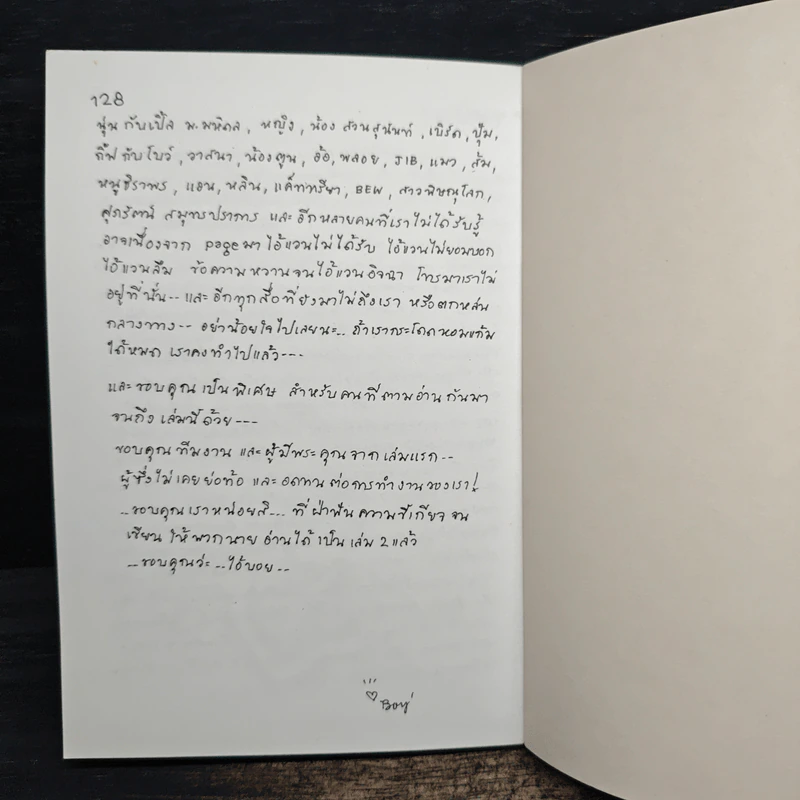 128
นุ่น กับเปิ้ล ม.มหิดล, หญิง, น้อง สวนสุนันท์, เบิร์ด, ปุ้ม,
กิ๊ฟ กับ โบว์, วาสนา, น้องตูน, อ้อ, พลอย, JIB, แมว, ส้ม,
หนูธิราพร, แอน, หลิน, แค็ททรียา, BEW, สาวพิษณุโลก,
สุภรัตน์ สมุทรปราการ และ อีกหลายคนที่เราไม่ได้รับรู้
อาจเนื่องจาก page มา ไอ้แวนไม่ได้รับ ไอ้แวนไม่ยอมบอก
ไอ้แวนลืม ข้อความหวานจนไอ้แวนอิจฉา โทรมาเราไม่
อยู่ที่นั่น-- และ อีกทุกสื่อที่ยังมาไม่ถึงเรา หรือตกหล่น
กลางทาง-- อย่าน้อยใจไปเลยนะ-- ถ้าเรากระโดดหอมแก้ม
ได้หมด เราคงทำไปแล้ว---
และขอบคุณเป็นพิเศษ สำหรับคนที่ตามอ่านกันมา
จนถึงเล่มนี้ด้วย---
ขอบคุณทีมงาน และผู้มีพระคุณจากเล่มแรก--
ผู้ซึ่งไม่เคยย่อท้อ และอดทนต่อการทำงานของเรา!
..ขอบคุณเราหน่อยสิ... ที่ฝ่าฟันความขี้เกียจจน
เขียน ให้พวกนาย อ่านได้เป็นเล่ม 2 แล้ว
--ขอบคุณว่ะ --ไอ้บอย--
Boy